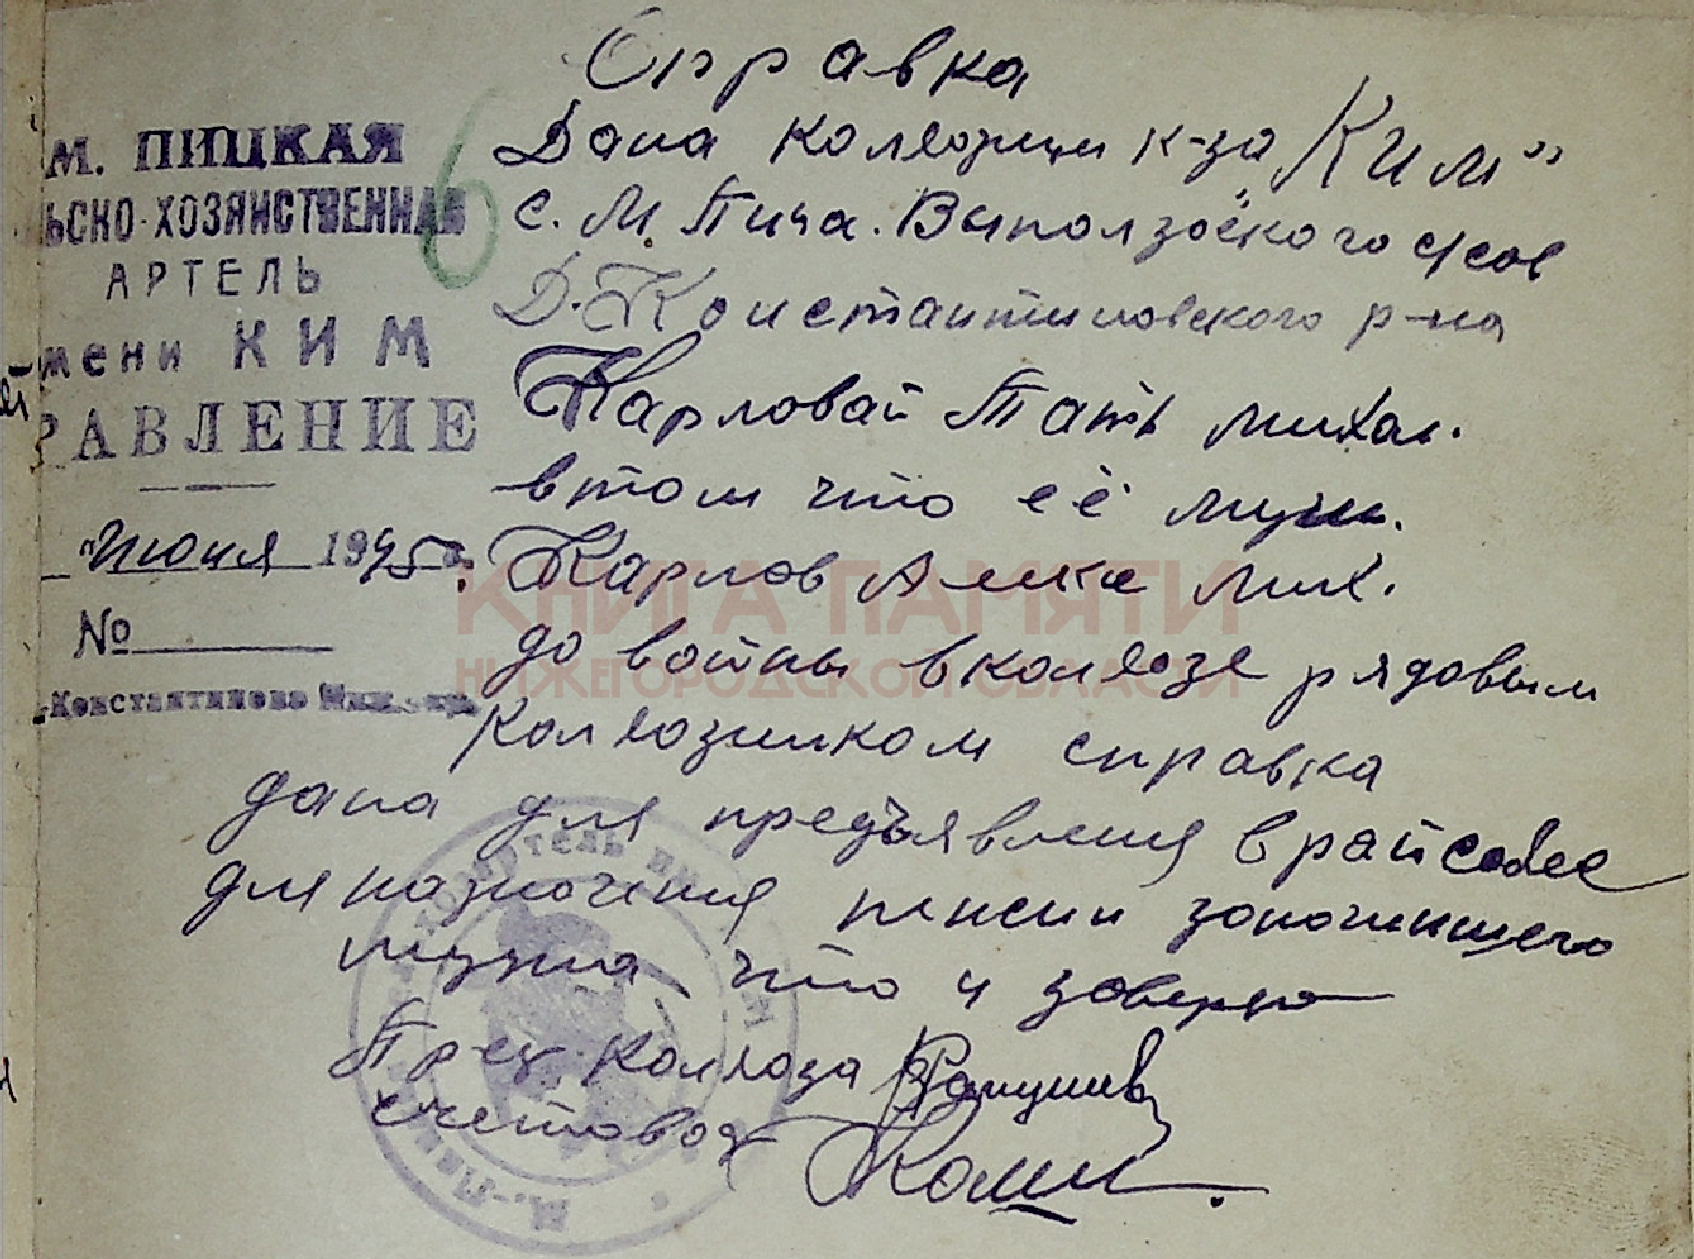 Справка
М. ПИЦКАЯ
ЬСКО-ХОЗЯЙСТВЕННАЯ
АРТЕЛЬ
мени КИМ
РАВЛЕНИЕ
"Июня 1945 г.
№
Константиново
6
Дана колхозници к-за "Ким"
с. М. Пица. Выползовского с/сов
Д-Константиновского р-на
Карловай Тать Михал.
в том что её муж.
Карлов Алксе Мих.
до войны в колхозе рядовым
колхозником справка
дана для предъявления в райсобес
для назночения пенсии за
мужа что и заверяю
Пред. колхоза
счетовод
КНИГА ПАМЯТИ
НИЖЕГОРОДСКОЙ ОБЛАСТИ